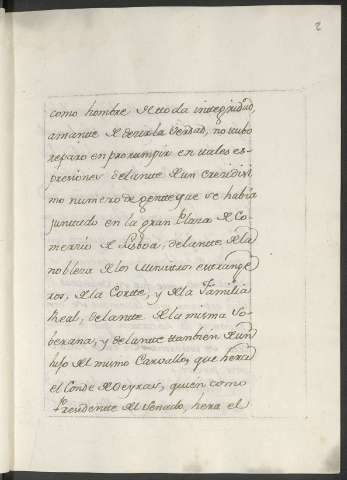 2
como hombre de toda integridad,
amante de dezir la verdad, no tubo
reparo en prorrumpir en tales es-
presiones delante de un crecidisi
mo numero de gente que se había
juntado en la gran Plaza de Co-
mercio de Lisboa, delante de la
nobleza de los Ministros estrange
ros, de la Corte, y de la Familia
Real, delante de la misma So-
berana, y delante tambien de un
hijo del mismo Carvallo, que hera
el Conde de Oeyras, quien como
Presidente del Senado, hera el